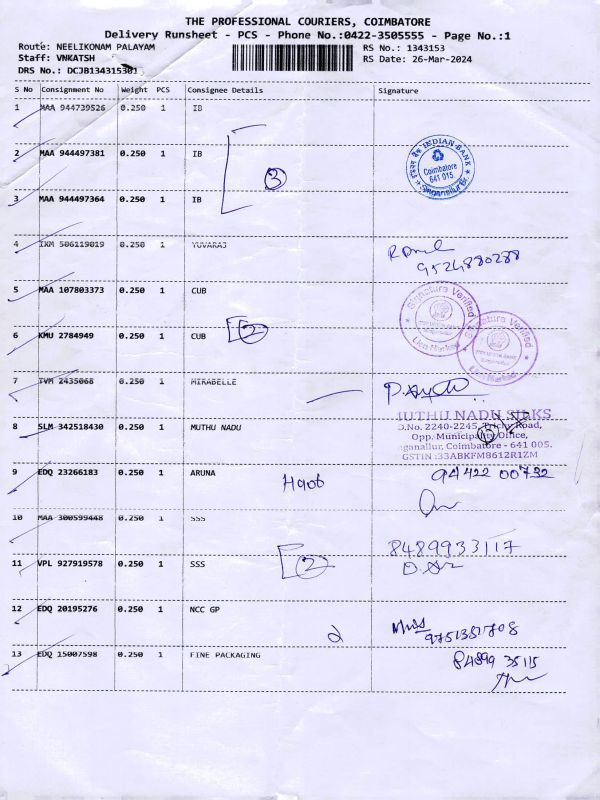 THE PROFESSIONAL COURIERS, COIMBATORE
Delivery Runsheet - PCS - Phone No.:0422-3505555 - Page No.:1
Route: NEELIKONAM PALAYAM RS No.: 1343153
Staff: VNKATSH RS Date: 26-Mar-2024
DRS No.: DCJB134315301
S No Consignment No Weight PCS Consignee Details Signature
1 MAA 944739526 0.250 1 IB
2 MAA 944497381 0.250 1 IB
INDIAN BANK
Coimbatore
641 015.
Singanallur Br.
3
3 MAA 944497364 0.250 1 IB
4 IXM 506119019 0.250 1 YUVARAJ
9524880288
5 MAA 107803373 0.250 1 CUB
Signature Verified
Signature Verified
6 KMU 2784949 0.250 1 CUB 2
7 TVM 2435068 0.250 1 MIRABELLE
8 SLM 342518430 0.250 1 MUTHU NADU
MUTHU NADU SILKS
D.No. 2240-2245, Trichy Road,
Opp. Municipality Office,
Singanallur, Coimbatore - 641 005.
GSTIN :33ABKFM8612R1ZM
9 EDQ 23266183 0.250 1 ARUNA
94422 00732
10 MAA 300599448 0.250 1 SSS
8489933117
11 VPL 927919578 0.250 1 SSS 2
12 EDQ 20195276 0.250 1 NCC GP
2
9751351708
13 EDQ 15007598 0.250 1 FINE PACKAGING
84899 35115